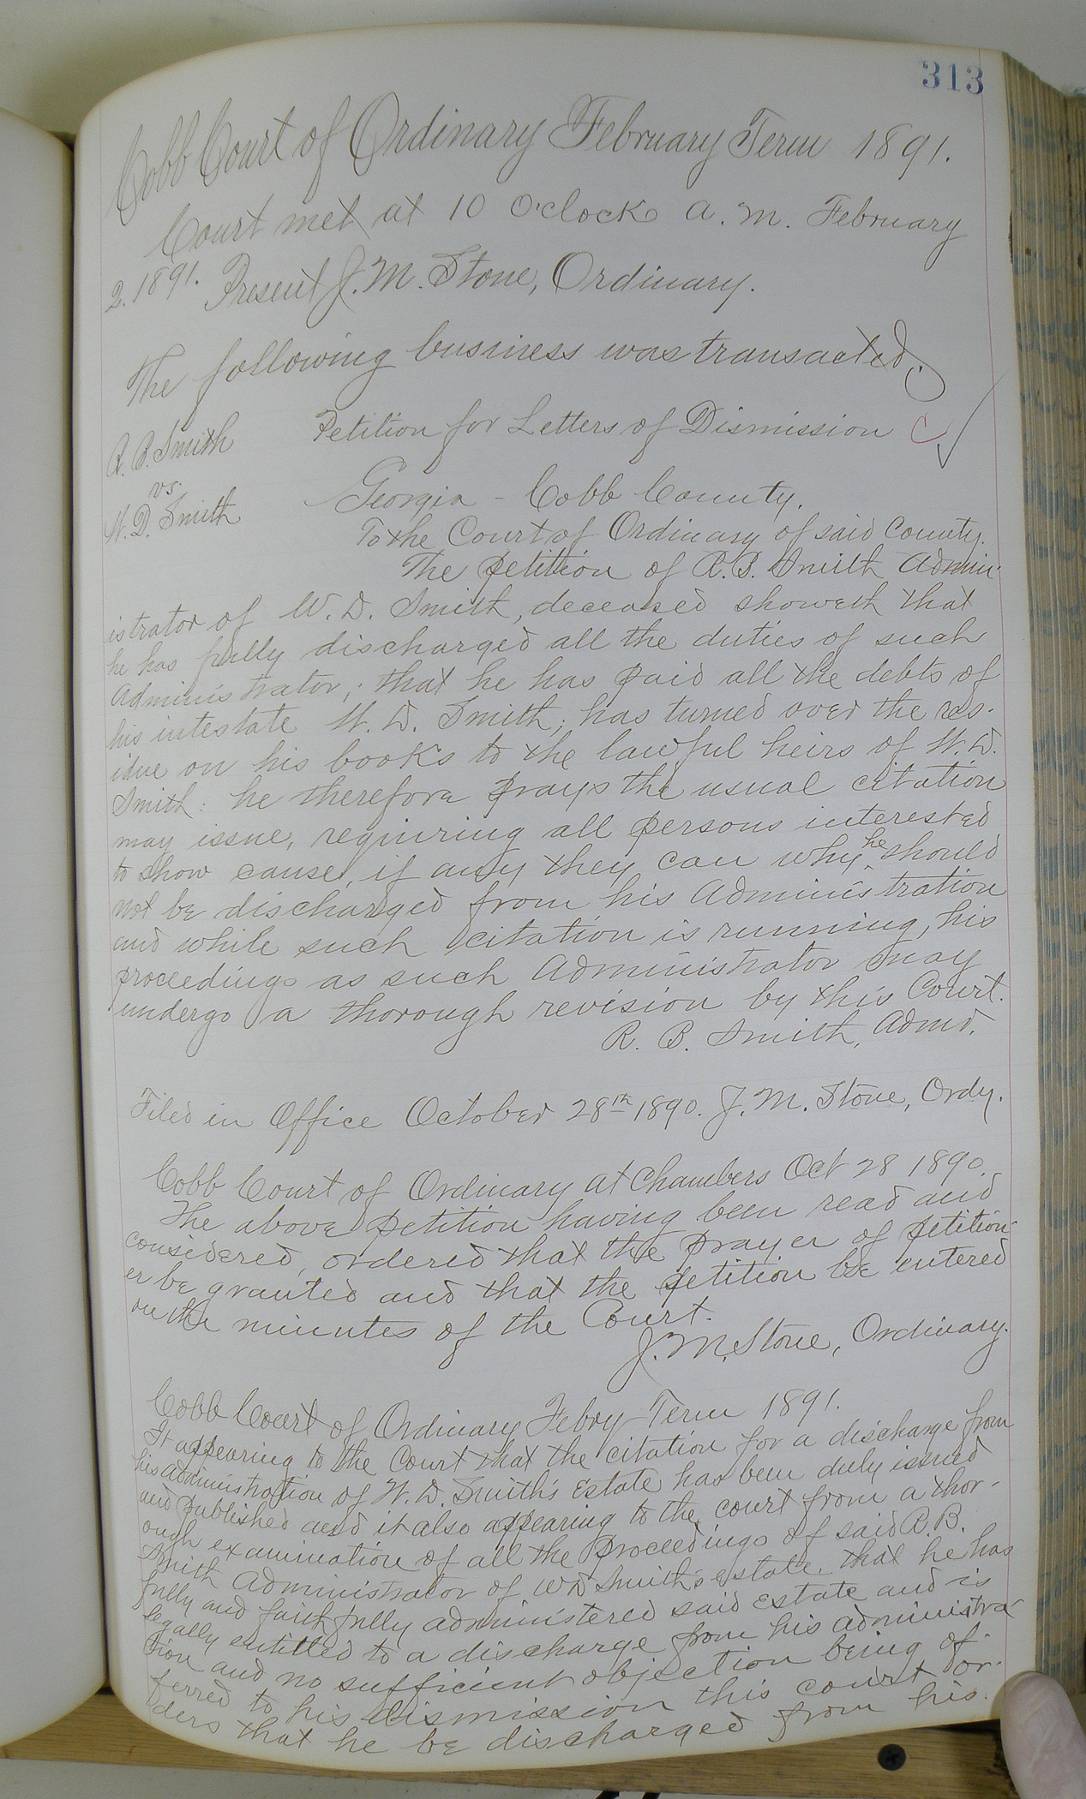 313
Cobb Court of Ordinary February Term 1891.
Court met at 10 O'clock a. m. February
2. 1891. Present J. M. Stone, Ordinary.
The following business was transacted.
R. B. Smith
vs.
W. D. Smith
Petition for Letters of Dismission C ✓
Georgia - Cobb County.
To the Court of Ordinary of said County.
The petition of R. B. Smith Admin-
istrator of W. D. Smith, deceased showeth that
he has fully discharged all the duties of such
Administrator; that he has paid all the debts of
his intestate W. D. Smith; has turned over the res-
idue on his books to the lawful heirs of W. D.
Smith: he therefore prays the usual citation
may issue, requiring all persons interested
to show cause, if any they can why he should
not be discharged from his Administration
and while such citation is running, his
proceedings as such Administrator may
undergo a thorough revision by this Court.
R. B. Smith, Admr.
Filed in Office October 28th 1890. J. M. Stone, Ordy.
Cobb Court of Ordinary at Chambers Oct 28 1890.
The above petition having been read and
considered, ordered that the prayer of petition-
er be granted and that the petition be entered
on the minutes of the Court.
J. M. Stone, Ordinary.
Cobb Court of Ordinary Febry Term 1891.
It appearing to the Court that the citation for a discharge from
his administration of W. D. Smith's Estate has been duly issued
and published and it also appearing to the court from a thor-
ough examination of all the proceedings of said R. B.
Smith Administrator of W D Smith's estate. that he has
fully and faithfully administered said estate and is
legally entitled to a discharge from his administra-
tion and no sufficient objection being of-
ferred to his dismission this court or-
ders that he be discharged from his